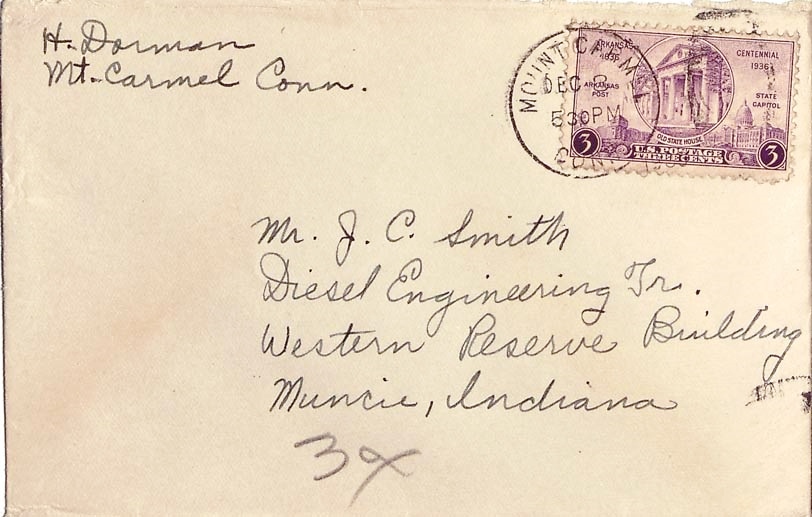 H. Dorman
Mt. Carmel Conn.
MOUNT CARMEL
DEC
530 PM
CONN
ARKANSAS
1836
CENTENNIAL
1936
ARKANSAS
POST
STATE
CAPITOL
OLD STATE HOUSE
3 U.S. POSTAGE 3
THREE CENTS
Mr. J. C. Smith
Diesel Engineering Tr.
Western Reserve Building
Muncie, Indiana
3x